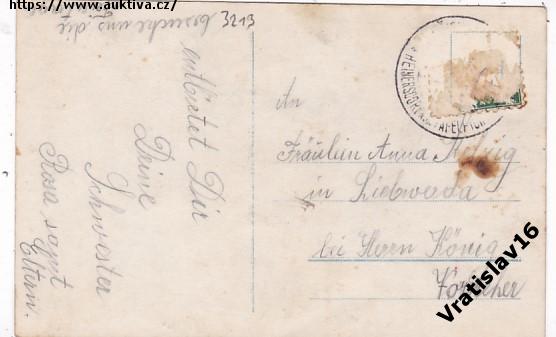 https://www.auktiva.cz/
3213
besuche uns die
entbietet Dir
Deine
Schwester
Rosa samt
Eltern.
HEINERSDORF A.D. TAFELFICHTE
An
Fräulein Anna
in Liebwerda
bei Herrn König
Vratislav16